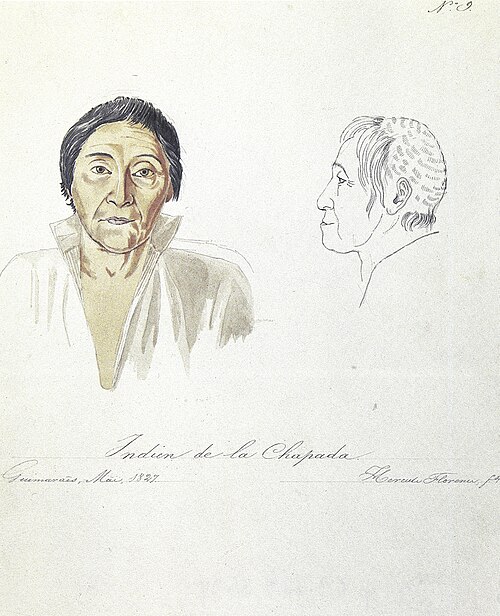 N.º 9.
Indien de la Chapada
Guimaraès, Mai, 1827.
Hercule Florence, ft